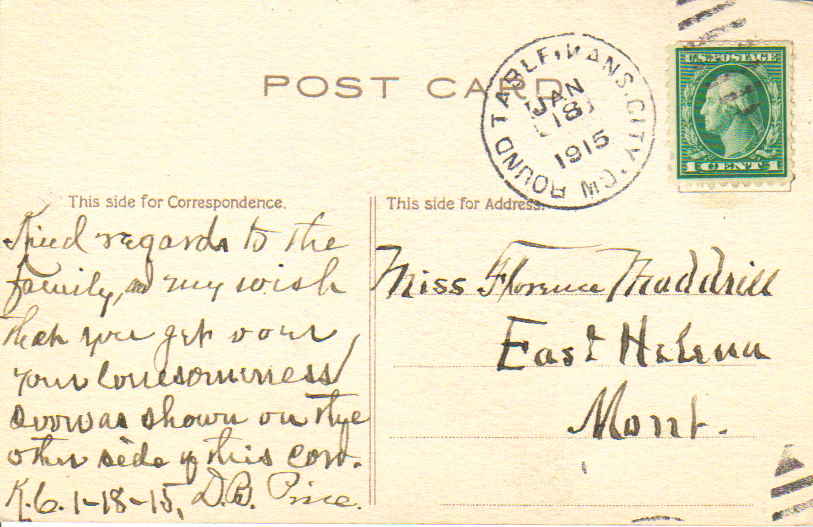 POST CARD
ROUND TABLE, KANS. CITY, MO.
JAN
18
1915
U.S. POSTAGE
1 CENT 1
This side for Correspondence.
This side for Address.
Kind regards to the
family, and my wish
that you get over
your lonesomeness
soon as shown on the
other side of this card.
K.C. 1-18-15, D.B.
Miss Florence Maddrill
East Helena
Mont.